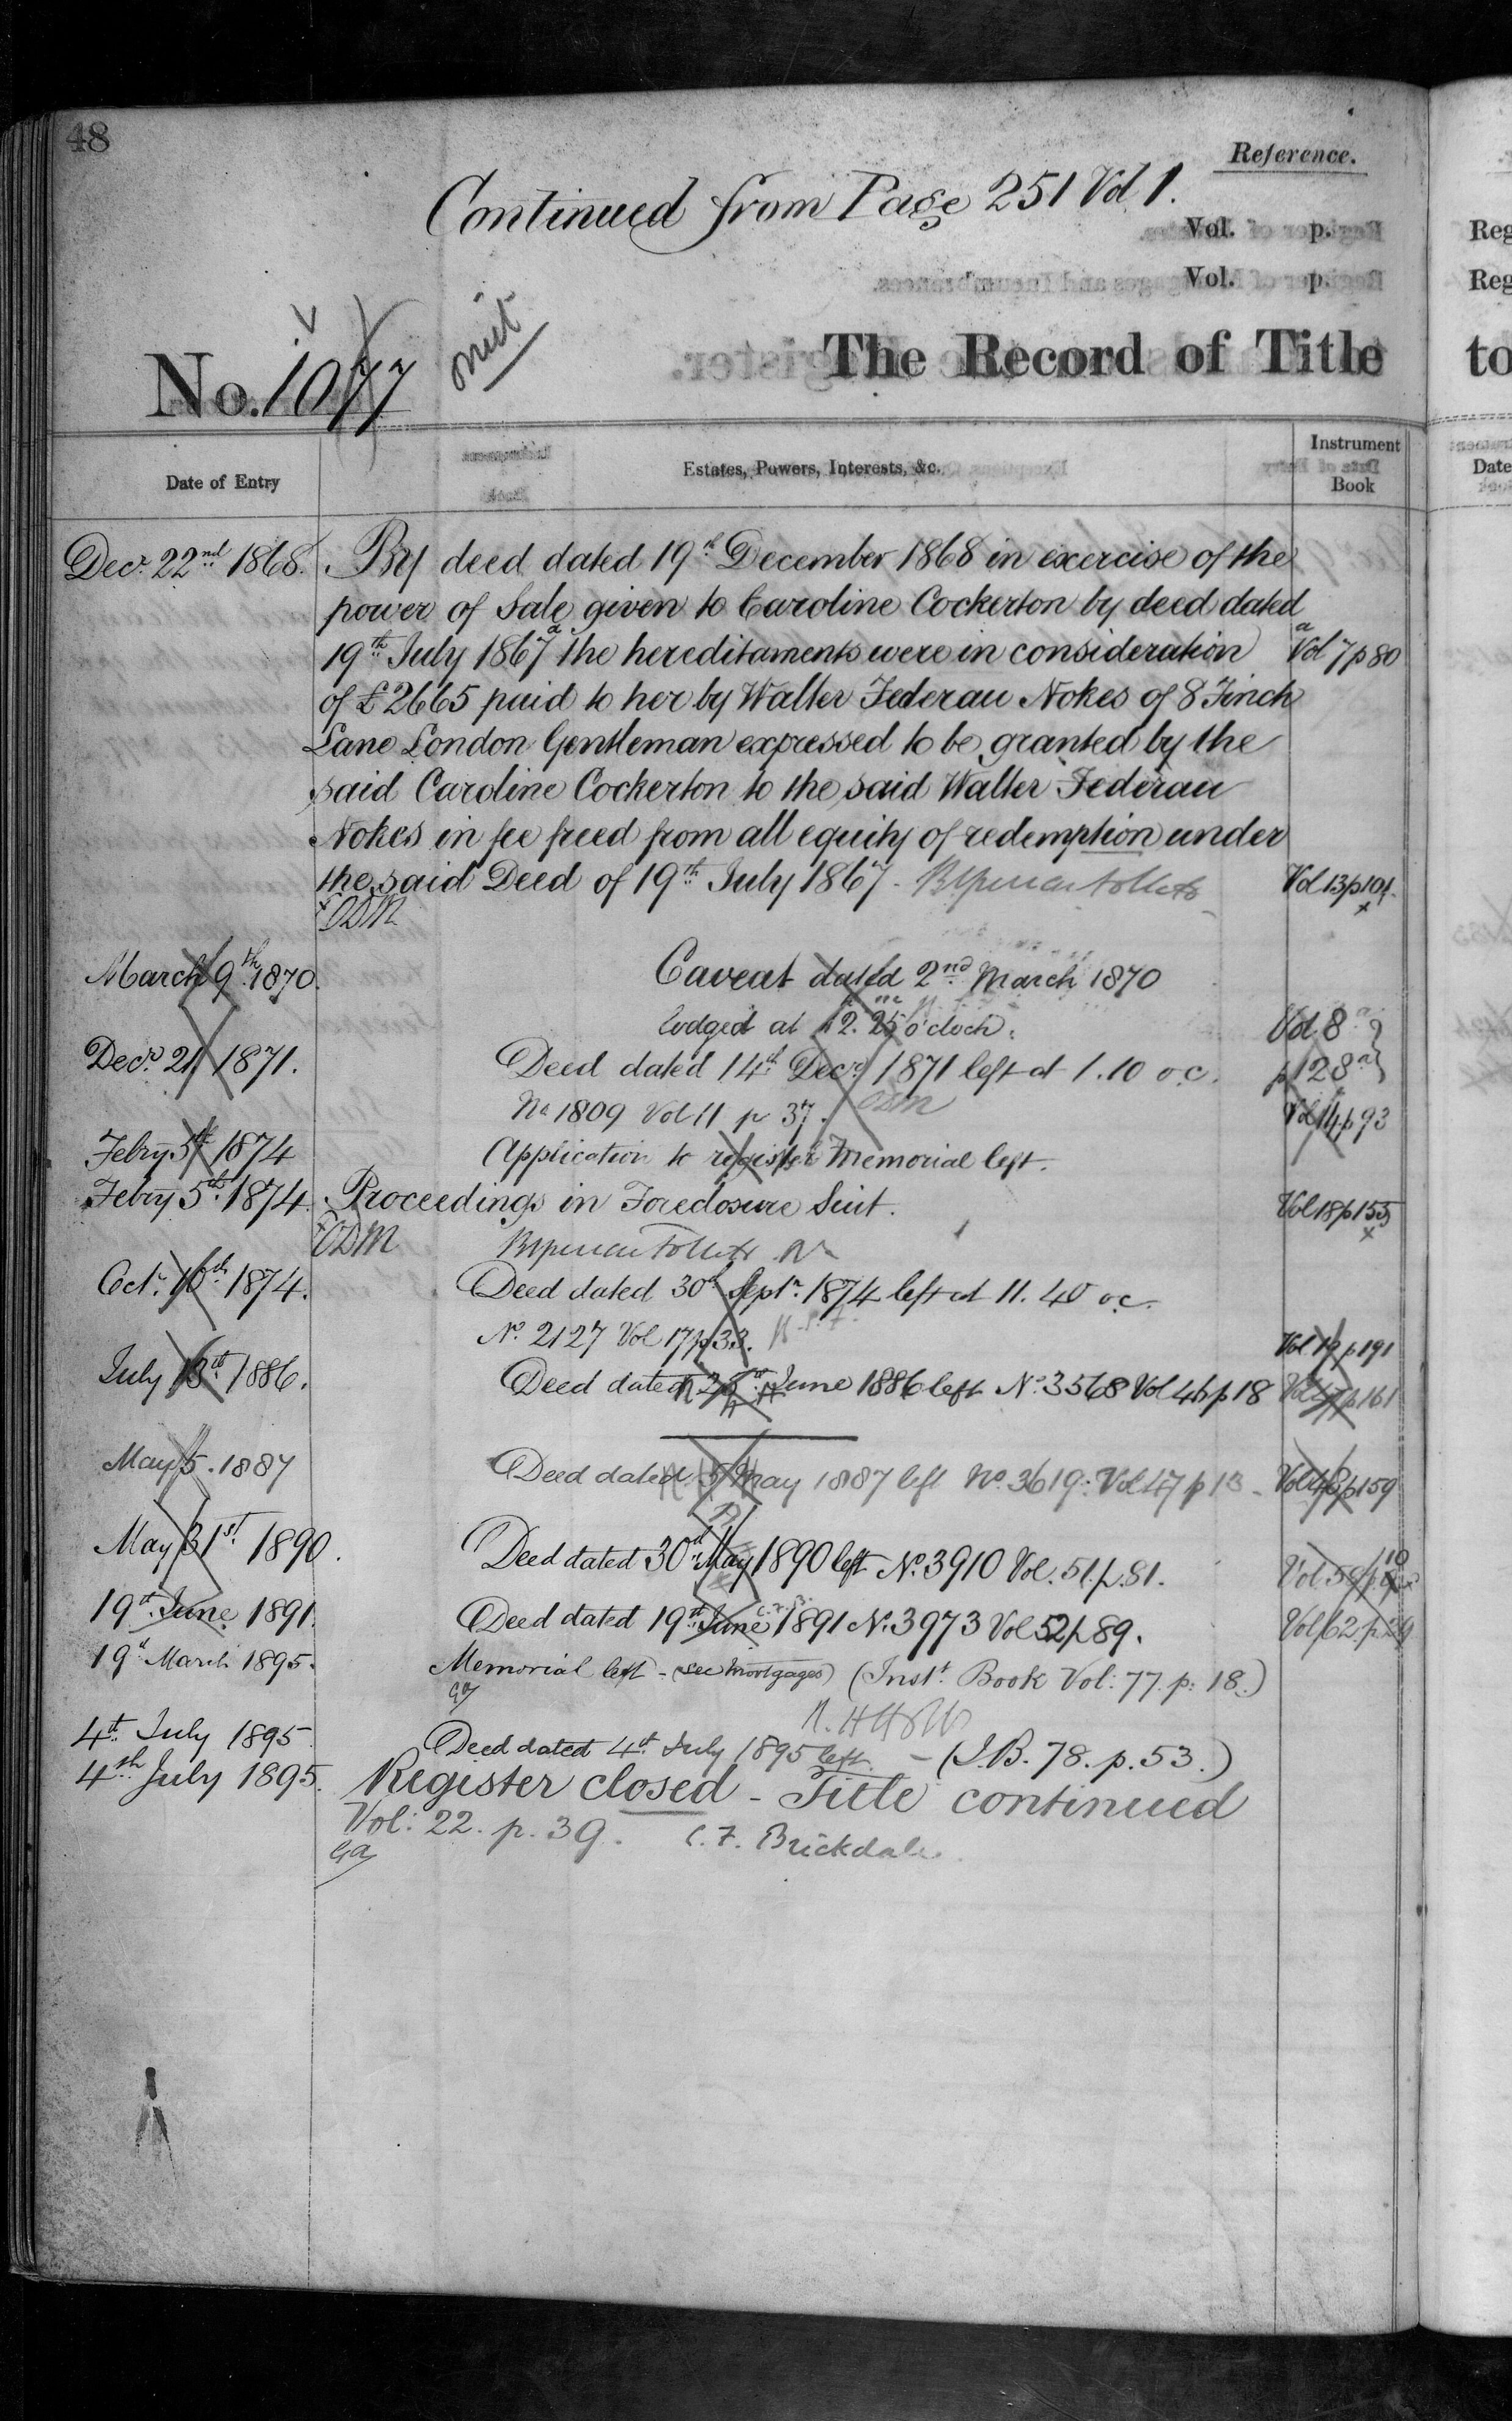 48
Reference.
Continued from Page 251 Vol 1.
Vol. p.
Vol. p.
omit
The Record of Title
No. 1077
Date of Entry
Estates, Powers, Interests, &c.
Instrument Book
Decr. 22nd 1868. By deed dated 19th December 1868 in exercise of the
power of Sale given to Caroline Cockerton by deed dated
19th July 1867 a the hereditaments were in consideration a Vol 7 p 80
of £2665 paid to her by Walter Federau Nokes of 8 Finch
Lane London Gentleman expressed to be granted by the
said Caroline Cockerton to the said Walter Federau
Nokes in fee freed from all equity of redemption under
the said Deed of 19th July 1867. Vol 13 p 104
x ODM x
March 9th 1870. Caveat dated 2nd March 1870
lodged at 12.25 o'clock. Vol 8
Decr. 21 1871. Deed dated 14th Decr. 1871 left at 1.10 o.c. p 128
No 1809 Vol 11 p 37. ODM Vol 14 p 93
Febry 5th 1874 Application to register Memorial left.
Febry 5th 1874. Proceedings in Foreclosure Suit. Vol 18 p 155
x ODM x
Octr. 10th 1874. Deed dated 30th Septr. 1874 left at 11.40 o.c.
No. 2127 Vol 17 p 33. Vol 19 p 191
July 13th 1886. Deed dated June 1886 left No. 3568 Vol 46 p 18 Vol 47 p 161
May 5. 1887 Deed dated 5 May 1887 left No. 3619: Vol 47 p 13 Vol 48 p 159
May 31st. 1890. Deed dated 30th May 1890 left No. 3910 Vol. 51. p. 81. Vol. 58 p
19th June 1891. Deed dated 19th June 1891 No. 3973 Vol 52 p 89. Vol 62. p
19th March 1895. Memorial left - (see Mortgages) (Inst. Book Vol: 77. p: 18.)
Ga
4th July 1895. Deed dated 4th July 1895 left. - (I.B. 78. p. 53.)
4th July 1895. Register closed - Title continued
Vol: 22. p. 39. C. F. Brickdale
Ga
Reg
Reg
to
Date